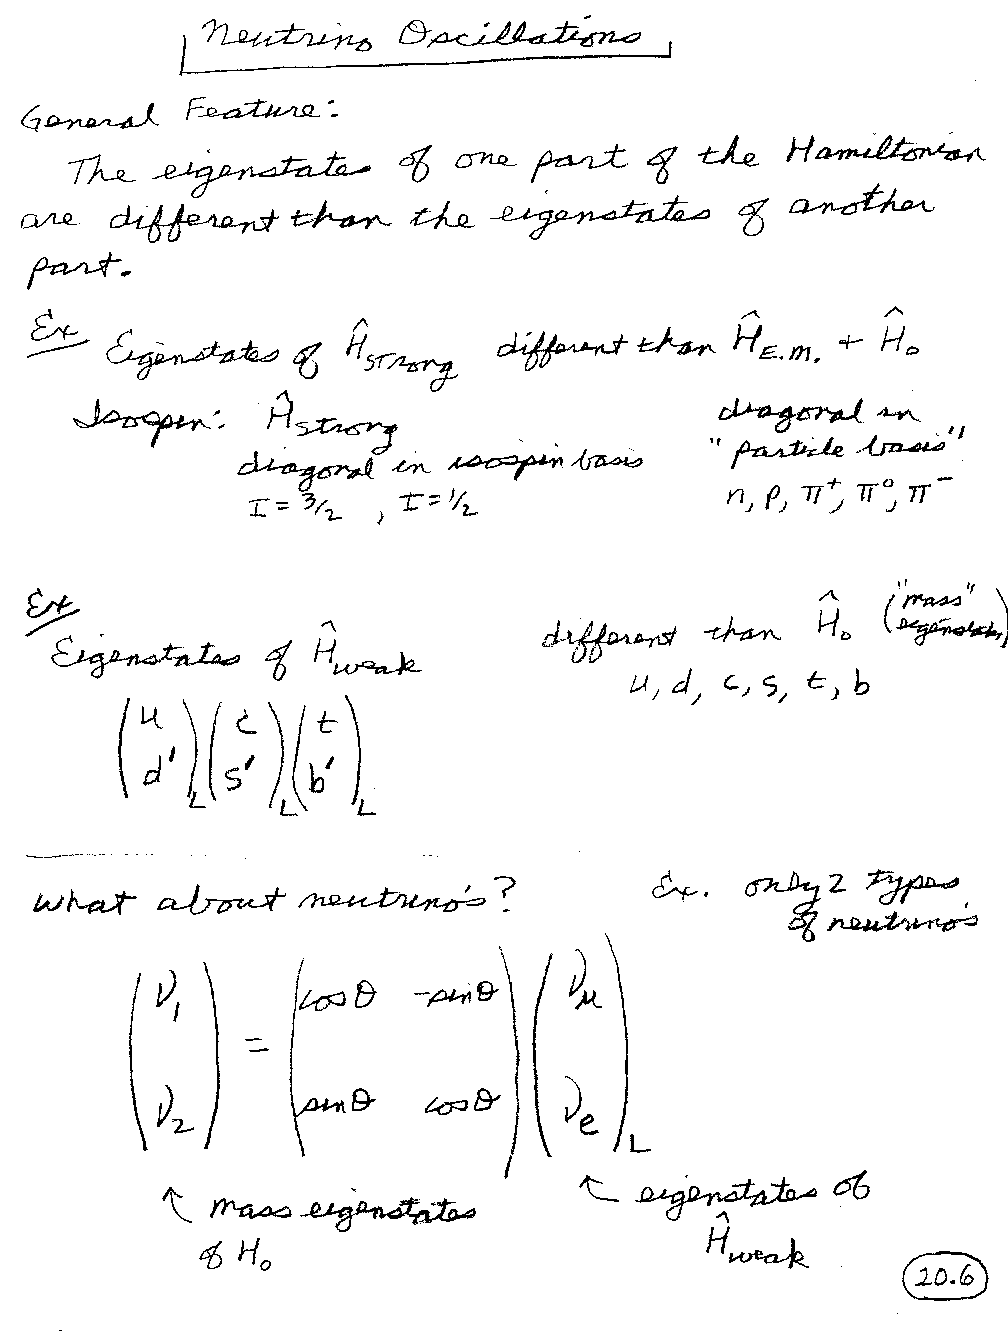 Neutrino Oscillations
General Feature:
The eigenstates of one part of the Hamiltonian
are different than the eigenstates of another
part.
Ex Eigenstates of Ĥstrong different than ĤE.M. + Ĥ₀
Isospin: Ĥstrong
diagonal in isospin basis
I = 3/2 , I = 1/2
diagonal in
"particle basis"
n, p, π⁺, π⁰, π⁻
Ex
Eigenstates of Ĥweak
different than Ĥ₀ ("mass" eigenstates)
u, d, c, s, t, b
(u d')L (c s')L (t b')L
What about neutrino's?
Ex. only 2 types
of neutrino's
(ν₁ ν₂) = (cosθ -sinθ sinθ cosθ) (νμ νe)L
↑ mass eigenstates
of H₀
↑ eigenstates of
Ĥweak
20.6